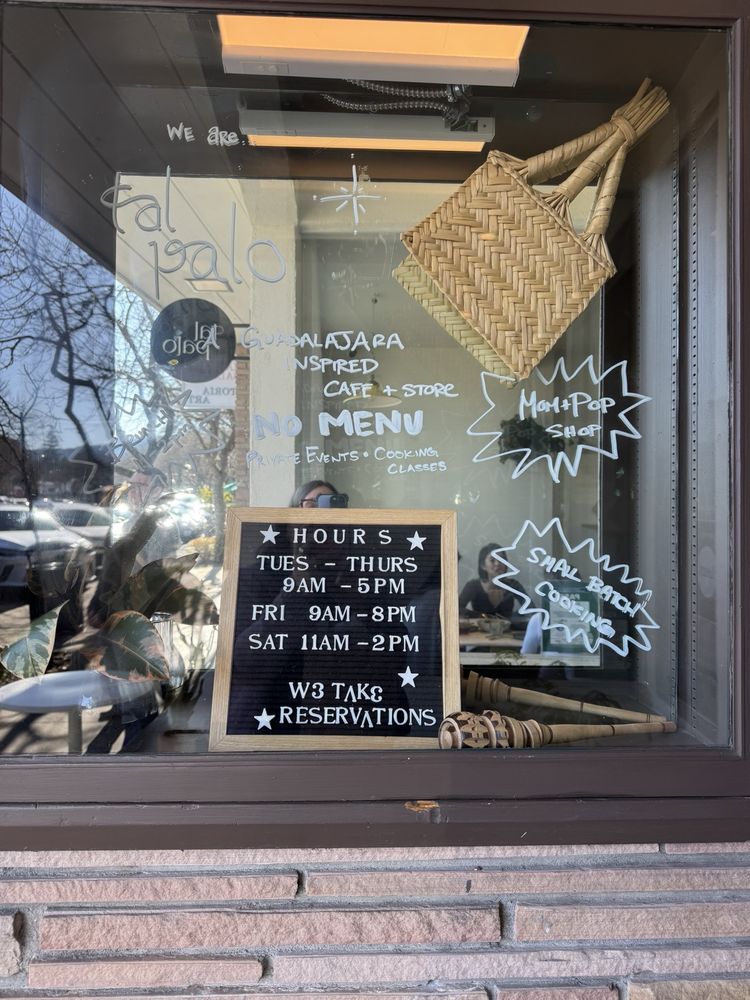 We are..
tal
palo
tal
palo
A GUADALAJARA
INSPIRED
CAFE + STORE
NO MENU
PRIVATE EVENTS • COOKING
CLASSES
MOM+POP
SHOP
SMALL BATCH
COOKING
HOURS
TUES - THURS
9AM - 5PM
FRI 9AM - 8PM
SAT 11AM - 2PM
W3 TAKE
RESERVATIONS